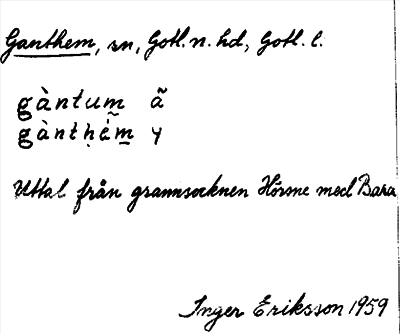 Ganthem, sn, Gotl. n. hd, Gotl. l.
gàntum ã
gàntḥé̃m̲ y
Uttal från grannsocknen Hörsne med Bara
Inger Eriksson 1959